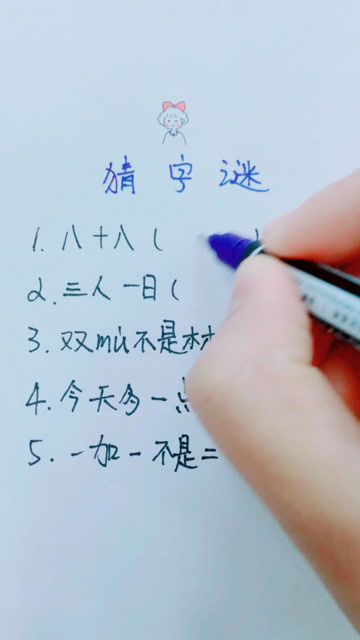 猜字谜
1. 八十八 (        )
2. 三人一日 (
3. 双mù不是林
4. 今天多一点
5. 一加一不是二